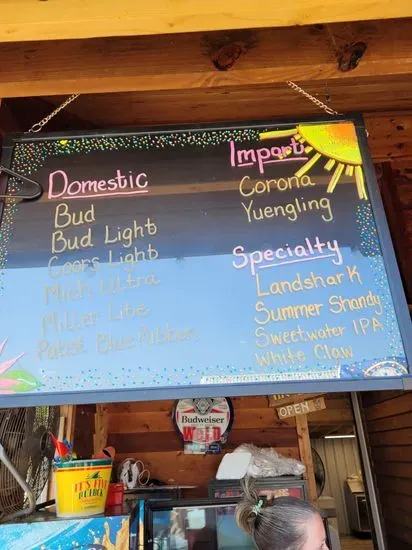 Domestic
Bud
Bud Light
Coors Light
Mich Ultra
Miller Lite
Pabst Blue Ribbon
Import
Corona
Yuengling
Specialty
Landshark
Summer Shandy
Sweetwater IPA
White Claw
Budweiser
OPEN
IT'S FIVE